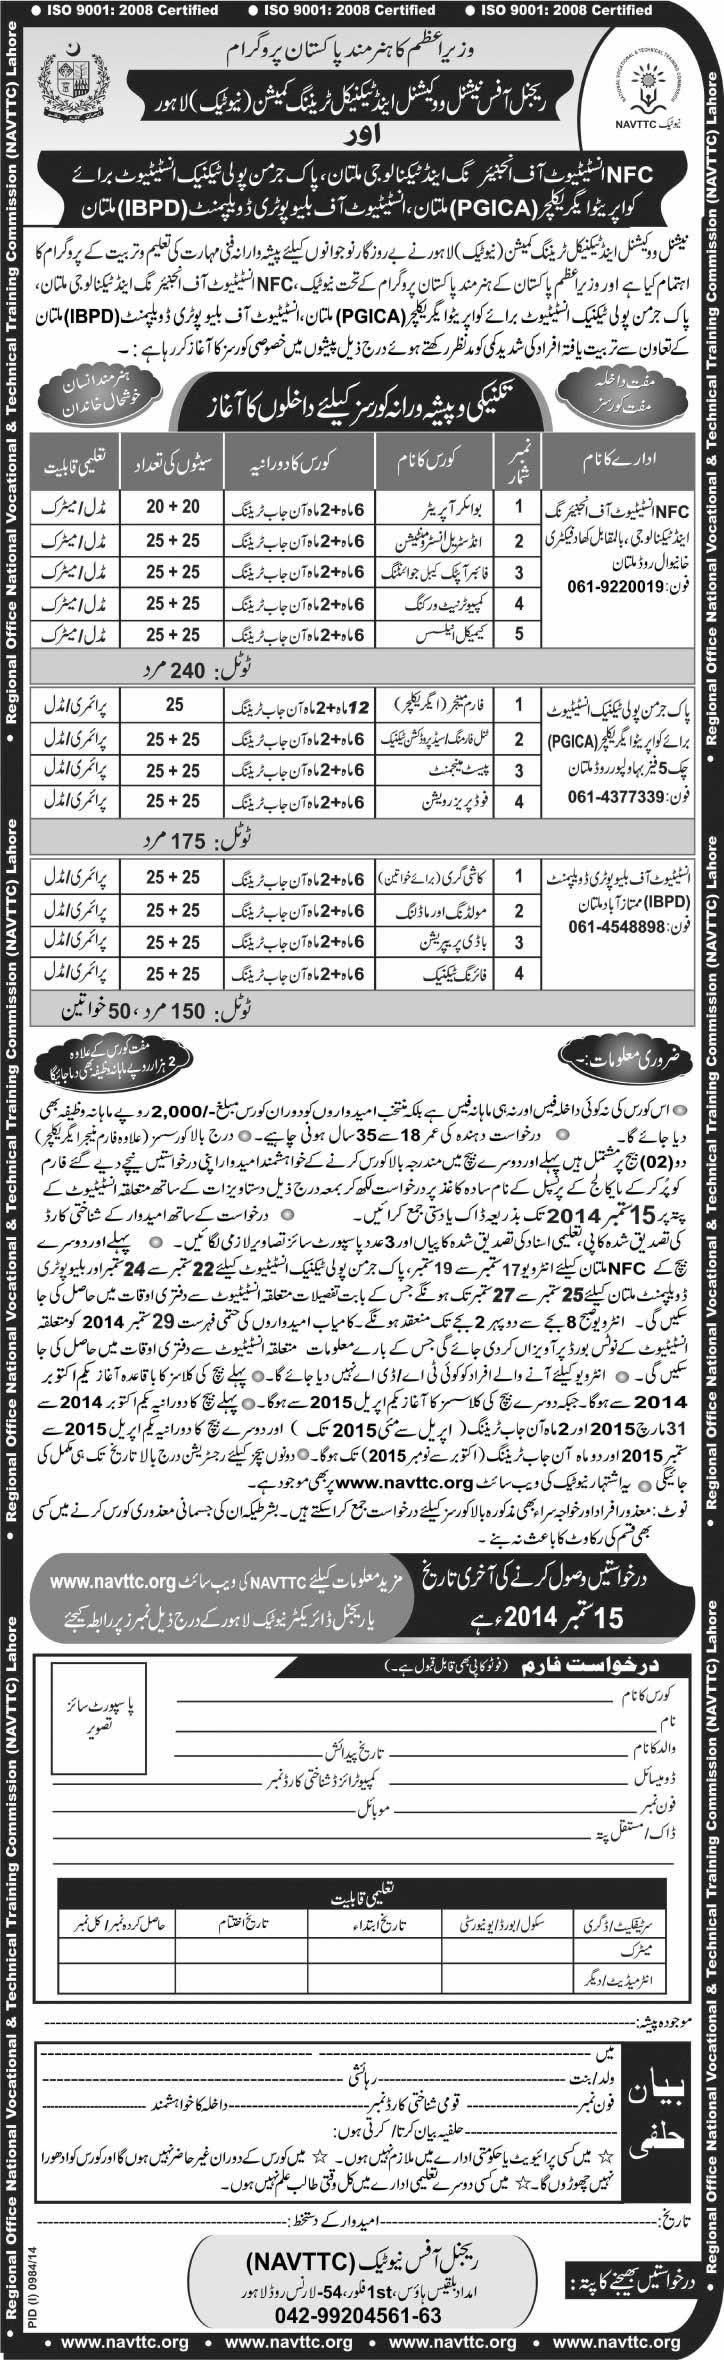 ● ISO 9001: 2008 Certified ● ISO 9001: 2008 Certified ● ISO 9001: 2008 Certified
وزیراعظم کا ہنرمند پاکستان پروگرام
ریجنل آفس نیشنل ووکیشنل اینڈ ٹیکنیکل ٹریننگ کمیشن (نیوٹیک) لاہور
NATIONAL VOCATIONAL & TECHNICAL TRAINING COMMISSION
NAVTTC نیوٹیک
اور
NFC انسٹیٹیوٹ آف انجنیئرنگ اینڈ ٹیکنالوجی ملتان، پاک جرمن پولی ٹیکنیک انسٹیٹیوٹ برائے
کواپریٹو ایگریکلچر (PGICA) ملتان، انسٹیٹیوٹ آف بلیو پوٹری ڈویلپمنٹ (IBPD) ملتان
نیشنل ووکیشنل اینڈ ٹیکنیکل ٹریننگ کمیشن (نیوٹیک) لاہور نے بے روزگار نوجوانوں کیلئے پیشہ وارانہ فنی مہارت کی تعلیم و تربیت کے پروگرام کا
اہتمام کیا ہے اور وزیراعظم پاکستان کے ہنرمند پاکستان پروگرام کے تحت نیوٹیک، NFC انسٹیٹیوٹ آف انجنیئرنگ اینڈ ٹیکنالوجی ملتان،
پاک جرمن پولی ٹیکنیک انسٹیٹیوٹ برائے کواپریٹو ایگریکلچر (PGICA) ملتان، انسٹیٹیوٹ آف بلیو پوٹری ڈویلپمنٹ (IBPD) ملتان
کے تعاون سے تربیت یافتہ افراد کی شدید کمی کو مدنظر رکھتے ہوئے درج ذیل پیشوں میں خصوصی کورسز کا آغاز کر رہا ہے :۔
مفت داخلہ
مفت کورسز
تکنیکی و پیشہ ورانہ کورسز کیلئے داخلوں کا آغاز
ہنرمند انسان
خوشحال خاندان
ادارے کا نام نمبر شمار کورس کا نام کورس کا دورانیہ سیٹوں کی تعداد تعلیمی قابلیت
NFC انسٹیٹیوٹ آف انجنیئرنگ
اینڈ ٹیکنالوجی، بالمقابل کھاد فیکٹری
خانیوال روڈ ملتان
فون: 061-9220019
1 بوائلر آپریٹر 6ماہ+2ماہ آن جاب ٹریننگ 20 + 20 مڈل/میٹرک
2 انڈسٹریل انسٹرومنٹیشن 6ماہ+2ماہ آن جاب ٹریننگ 25 + 25 مڈل/میٹرک
3 فائبر آپٹک کیبل جوائنٹنگ 6ماہ+2ماہ آن جاب ٹریننگ 25 + 25 مڈل/میٹرک
4 کمپیوٹر نیٹ ورکنگ 6ماہ+2ماہ آن جاب ٹریننگ 25 + 25 مڈل/میٹرک
5 کیمیکل انیلسس 6ماہ+2ماہ آن جاب ٹریننگ 25 + 25 مڈل/میٹرک
ٹوٹل: 240 مرد
پاک جرمن پولی ٹیکنیک انسٹیٹیوٹ
برائے کواپریٹو ایگریکلچر (PGICA)
چک 5 فیض بہاولپور روڈ ملتان
فون: 061-4377339
1 فارم منیجر (ایگریکلچر) 12ماہ+2ماہ آن جاب ٹریننگ 25 پرائمری/مڈل
2 ٹنل فارمنگ/سیڈ پروڈکشن ٹیکنیک 6ماہ+2ماہ آن جاب ٹریننگ 25 + 25 پرائمری/مڈل
3 پیسٹ مینجمنٹ 6ماہ+2ماہ آن جاب ٹریننگ 25 + 25 پرائمری/مڈل
4 فوڈ پریزرویشن 6ماہ+2ماہ آن جاب ٹریننگ 25 + 25 پرائمری/مڈل
ٹوٹل: 175 مرد
انسٹیٹیوٹ آف بلیو پوٹری ڈویلپمنٹ
(IBPD) ممتاز آباد ملتان
فون: 061-4548898
1 کاشی گری (برائے خواتین) 6ماہ+2ماہ آن جاب ٹریننگ 25 + 25 پرائمری/مڈل
2 مولڈنگ اور ماڈلنگ 6ماہ+2ماہ آن جاب ٹریننگ 25 + 25 پرائمری/مڈل
3 باڈی پریپریشن 6ماہ+2ماہ آن جاب ٹریننگ 25 + 25 پرائمری/مڈل
4 فائرنگ ٹیکنیک 6ماہ+2ماہ آن جاب ٹریننگ 25 + 25 پرائمری/مڈل
ٹوٹل: 150 مرد، 50 خواتین
ضروری معلومات:۔
مفت کورس کے علاوہ
2 ہزار روپے ماہانہ وظیفہ بھی دیا جائیگا
● اس کورس کی نہ کوئی داخلہ فیس اور نہ ہی ماہانہ فیس ہے بلکہ منتخب امیدواروں کو دوران کورس مبلغ -/2,000 روپے ماہانہ وظیفہ بھی
دیا جائے گا۔ ● درخواست دہندہ کی عمر 18 سے 35 سال ہونی چاہیے۔ ● درج بالا کورسز (علاوہ فارم منیجر ایگریکلچر)
دو (02) بیچ پر مشتمل ہیں پہلے اور دوسرے بیچ میں مندرجہ بالا کورس کرنے کے خواہشمند امیدوار اپنی درخواستیں نیچے دیے گئے فارم
کو پُر کر کے یا کالج کے پرنسپل کے نام سادہ کاغذ پر درخواست لکھ کر بمعہ درج ذیل دستاویزات کے ساتھ متعلقہ انسٹیٹیوٹ کے
پتہ پر 15 ستمبر 2014 تک بذریعہ ڈاک یا دستی جمع کرائیں۔ ● درخواست کے ساتھ امیدوار کے شناختی کارڈ
کی تصدیق شدہ کاپی، تعلیمی اسناد کی تصدیق شدہ کاپیاں اور 3 عدد پاسپورٹ سائز تصاویر لازمی لگائیں۔ ● پہلے اور دوسرے
بیچ کے NFC ملتان کیلئے انٹرویو 17 ستمبر سے 19 ستمبر، پاک جرمن پولی ٹیکنیک انسٹیٹیوٹ کیلئے 22 ستمبر سے 24 ستمبر اور بلیو پوٹری
ڈویلپمنٹ ملتان کیلئے 25 ستمبر سے 27 ستمبر تک ہونگے جس کے بابت تفصیلات متعلقہ انسٹیٹیوٹ سے دفتری اوقات میں حاصل کی جا
سکیں گی۔ انٹرویو صبح 8 بجے سے دوپہر 2 بجے تک منعقد ہونگے۔ کامیاب امیدواروں کی حتمی فہرست 29 ستمبر 2014 کو متعلقہ
انسٹیٹیوٹ کے نوٹس بورڈ پر آویزاں کر دی جائے گی جس کے بارے معلومات متعلقہ انسٹیٹیوٹ سے دفتری اوقات میں حاصل کی جا
سکیں گی۔ ● انٹرویو کیلئے آنے والے افراد کو کوئی ٹی اے/ڈی اے نہیں دیا جائے گا۔ ● پہلے بیچ کی کلاسز کا باقاعدہ آغاز یکم اکتوبر
2014 سے ہوگا۔ جبکہ دوسرے بیچ کی کلاسز کا آغاز یکم اپریل 2015 سے ہوگا۔ ● پہلے بیچ کا دورانیہ یکم اکتوبر 2014 سے
31 مارچ 2015 اور 2 ماہ آن جاب ٹریننگ (اپریل سے مئی 2015 تک) اور دوسرے بیچ کا دورانیہ یکم اپریل 2015 سے
ستمبر 2015 اور دو ماہ آن جاب ٹریننگ (اکتوبر سے نومبر 2015) تک ہوگا۔ ● دونوں بیچز کیلئے رجسٹریشن درج بالا تاریخ تک ہی مکمل کی
جائیگی ● یہ اشتہار نیوٹیک کی ویب سائٹ www.navttc.org پر بھی موجود ہے۔
نوٹ: معذور افراد اور خواجہ سراء بھی مذکورہ بالا کورسز کیلئے درخواست جمع کرا سکتے ہیں۔ بشرطیکہ ان کی جسمانی معذوری کورس کرنے میں کسی
بھی قسم کی رکاوٹ کا باعث نہ بنے۔
درخواستیں وصول کرنے کی آخری تاریخ
15 ستمبر 2014ء ہے
مزید معلومات کیلئے NAVTTC کی ویب سائٹ www.navttc.org
یا ریجنل ڈائریکٹر نیوٹیک لاہور کے درج ذیل نمبرز پر رابطہ کیجئے
درخواست فارم (فوٹو کاپی بھی قابل قبول ہے۔)
پاسپورٹ سائز
تصویر
کورس کا نام
نام
والد کا نام تاریخ پیدائش
ڈومیسائل کمپیوٹرائزڈ شناختی کارڈ نمبر
فون نمبر موبائل
ڈاک/مستقل پتہ
تعلیمی قابلیت
سرٹیفکیٹ/ڈگری سکول/بورڈ/یونیورسٹی تاریخ ابتداء تاریخ اختتام حاصل کردہ نمبر/کل نمبر
میٹرک
انٹرمیڈیٹ/دیگر
موجودہ پیشہ:
بیان حلفی
میں
ولد/بنت رہائشی
فون نمبر قومی شناختی کارڈ نمبر داخلہ کا خواہشمند
حلفیہ بیان کرتا/کرتی ہوں:
☆ میں کسی پرائیویٹ یا حکومتی ادارے میں ملازم نہیں ہوں۔ ☆ میں کورس کے دوران غیر حاضر نہیں ہوں گا اور کورس کو ادھورا
نہیں چھوڑوں گا۔ ☆ میں کسی دوسرے تعلیمی ادارے میں کل وقتی طالب علم نہیں ہوں۔
تاریخ: امیدوار کے دستخط:
درخواستیں بھیجنے کا پتہ:
ریجنل آفس نیوٹیک (NAVTTC)
امداد بلقیس ہاؤس، 1st فلور، 54-لارنس روڈ لاہور
042-99204561-63
PID (I) 0984/14
● www.navttc.org ● www.navttc.org ● www.navttc.org ● www.navttc.org
● Regional Office National Vocational & Technical Training Commission (NAVTTC) Lahore
● Regional Office National Vocational & Technical Training Commission (NAVTTC) Lahore
● Regional Office National Vocational & Technical Training Commission (NAVTTC) Lahore
● Regional Office National Vocational & Technical Training Commission (NAVTTC) Lahore
● Regional Office National Vocational & Technical Training Commission (NAVTTC) Lahore
● Regional Office National Vocational & Technical Training Commission (NAVTTC) Lahore